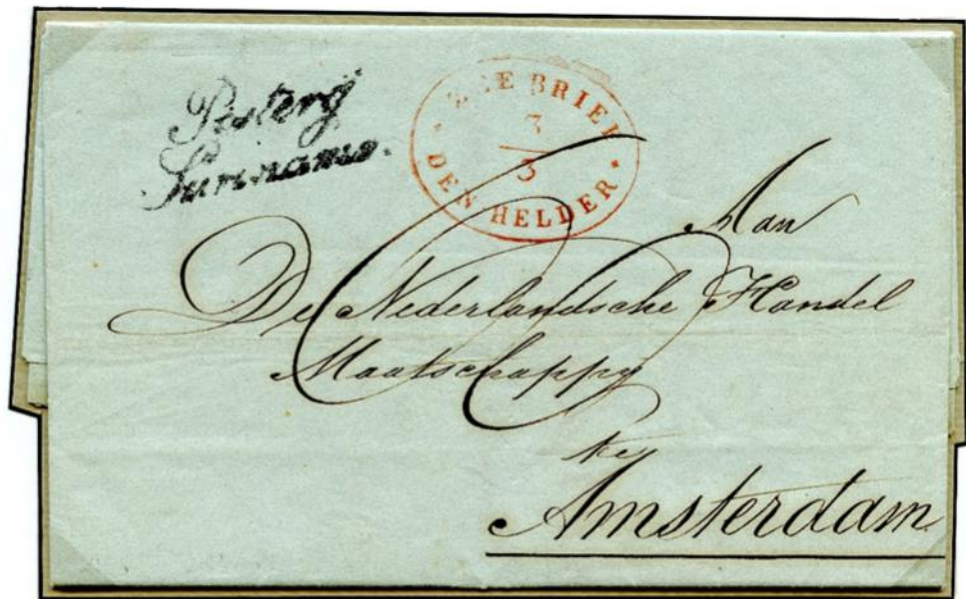 Posterij
Suriname.
ZEEBRIEF
3
3
DEN HELDER
Aan
De Nederlandsche Handel
Maatschappy
te
Amsterdam